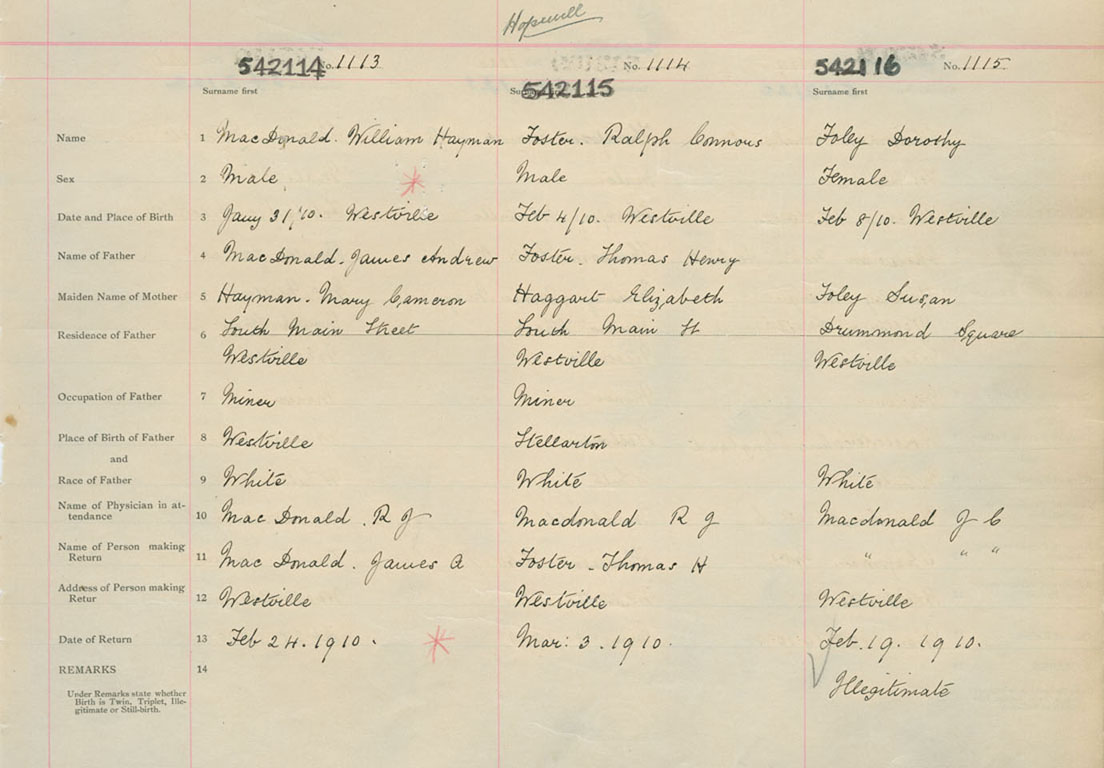 Hopewell
542114 No. 1113 No. 1114 542116 No. 1115
Surname first 542115 Surname first
Name 1 MacDonald. William Hayman Foster. Ralph Connors Foley Dorothy
Sex 2 Male Male Female
Date and Place of Birth 3 Jany 31/10. Westville Feb 4/10. Westville Feb 8/10. Westville
Name of Father 4 MacDonald. James Andrew Foster. Thomas Henry
Maiden Name of Mother 5 Hayman. Mary Cameron Haggart Elizabeth Foley Susan
Residence of Father 6 South Main Street South Main St Drummond Square
Westville Westville Westville
Occupation of Father 7 Miner Miner
Place of Birth of Father 8 Westville Stellarton
and
Race of Father 9 White White White
Name of Physician in at-
tendance 10 Mac Donald. R J Macdonald R J Macdonald J C
Name of Person making
Return 11 Mac Donald. James A Foster - Thomas H " " "
Address of Person making
Retur 12 Westville Westville Westville
Date of Return 13 Feb 24. 1910. Mar: 3. 1910. Feb. 19. 1910.
REMARKS 14
Under Remarks state whether
Birth is Twin, Triplet, Ille-
gitimate or Still-birth.
Illegitimate